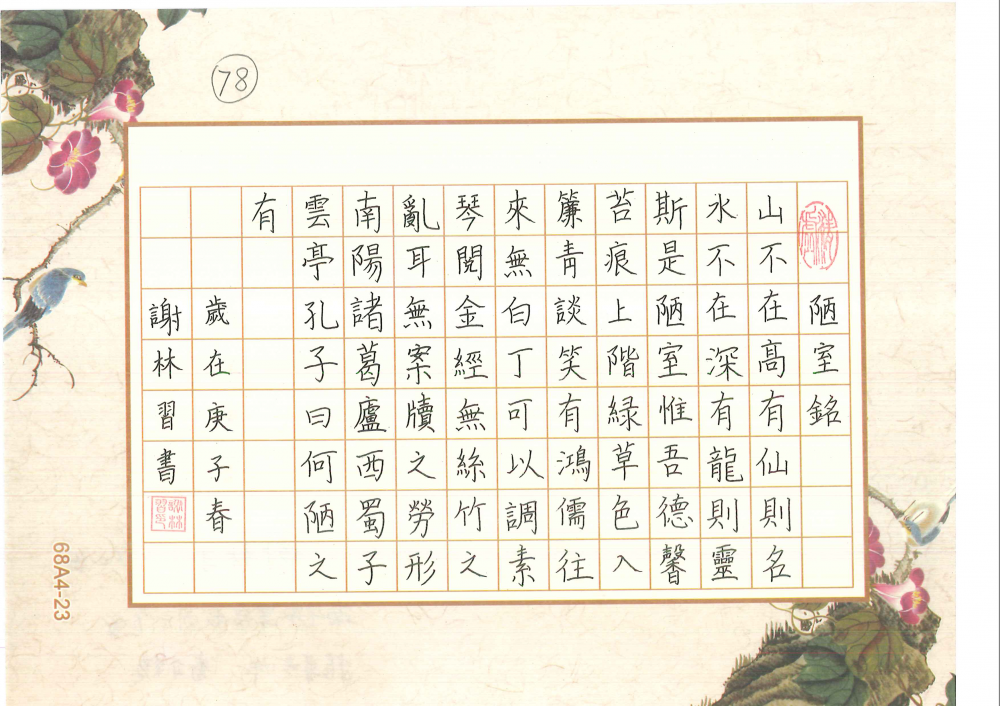 78
陋室銘
山不在高有仙則名
水不在深有龍則靈
斯是陋室惟吾德馨
苔痕上階綠草色入
簾青談笑有鴻儒往
來無白丁可以調素
琴閱金經無絲竹之
亂耳無案牘之勞形
南陽諸葛廬西蜀子
雲亭孔子曰何陋之
有
歲在庚子春
謝林習書
68A4-23